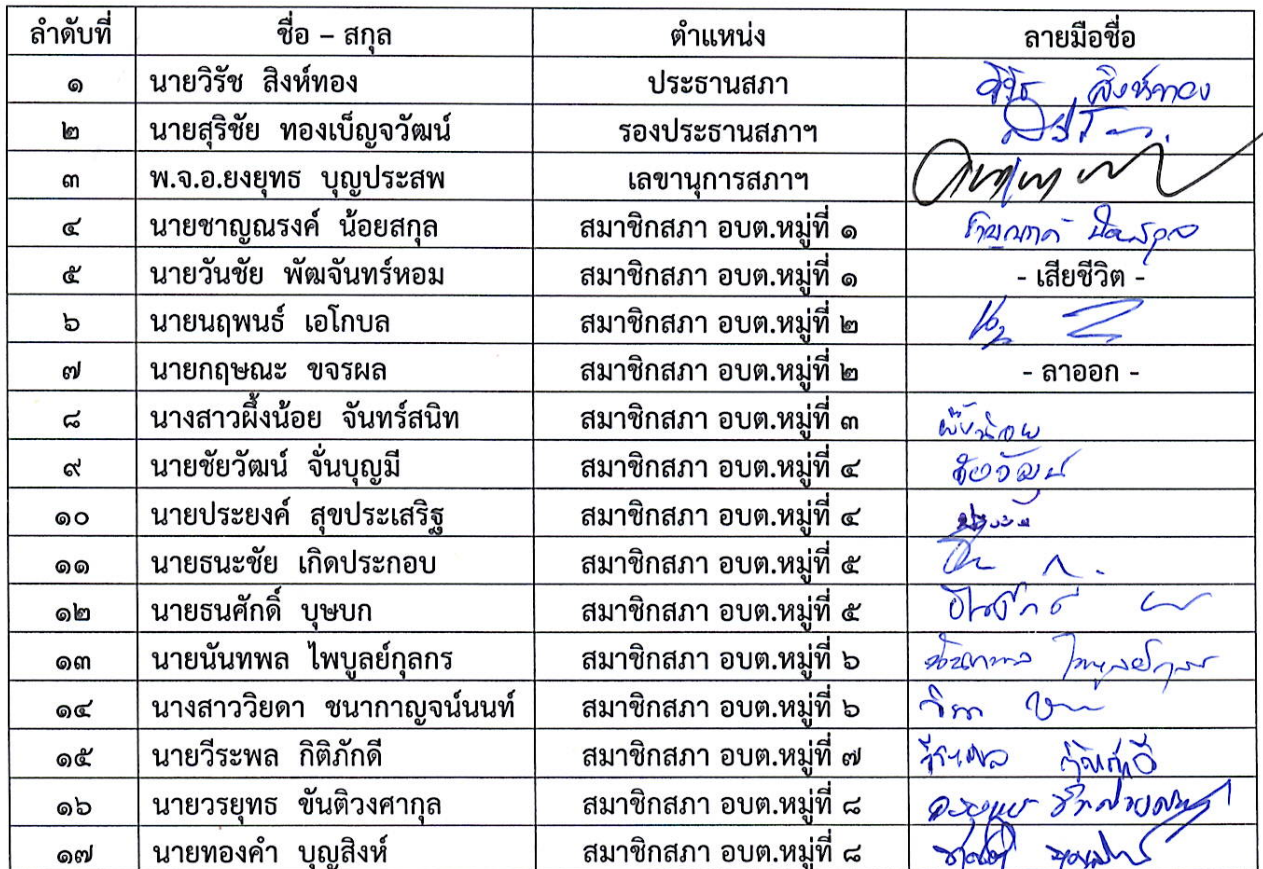 ลำดับที่ ชื่อ – สกุล ตำแหน่ง ลายมือชื่อ
๑ นายวิรัช สิงห์ทอง ประธานสภา สิงห์ทอง
๒ นายสุริชัย ทองเบ็ญจวัฒน์ รองประธานสภาฯ
๓ พ.จ.อ.ยงยุทธ บุญประสพ เลขานุการสภาฯ
๔ นายชาญณรงค์ น้อยสกุล สมาชิกสภา อบต.หมู่ที่ ๑
๕ นายวันชัย พัฒจันทร์หอม สมาชิกสภา อบต.หมู่ที่ ๑ - เสียชีวิต -
๖ นายนฤพนธ์ เอโกบล สมาชิกสภา อบต.หมู่ที่ ๒
๗ นายกฤษณะ ขจรผล สมาชิกสภา อบต.หมู่ที่ ๒ - ลาออก -
๘ นางสาวผึ้งน้อย จันทร์สนิท สมาชิกสภา อบต.หมู่ที่ ๓ ผึ้งน้อย
๙ นายชัยวัฒน์ จั่นบุญมี สมาชิกสภา อบต.หมู่ที่ ๔ ชัยวัฒน์
๑๐ นายประยงค์ สุขประเสริฐ สมาชิกสภา อบต.หมู่ที่ ๔
๑๑ นายธนะชัย เกิดประกอบ สมาชิกสภา อบต.หมู่ที่ ๕
๑๒ นายธนศักดิ์ บุษบก สมาชิกสภา อบต.หมู่ที่ ๕
๑๓ นายนันทพล ไพบูลย์กุลกร สมาชิกสภา อบต.หมู่ที่ ๖
๑๔ นางสาววิยดา ชนากาญจน์นนท์ สมาชิกสภา อบต.หมู่ที่ ๖
๑๕ นายวีระพล กิติภักดี สมาชิกสภา อบต.หมู่ที่ ๗
๑๖ นายวรยุทธ ขันติวงศากุล สมาชิกสภา อบต.หมู่ที่ ๘
๑๗ นายทองคำ บุญสิงห์ สมาชิกสภา อบต.หมู่ที่ ๘